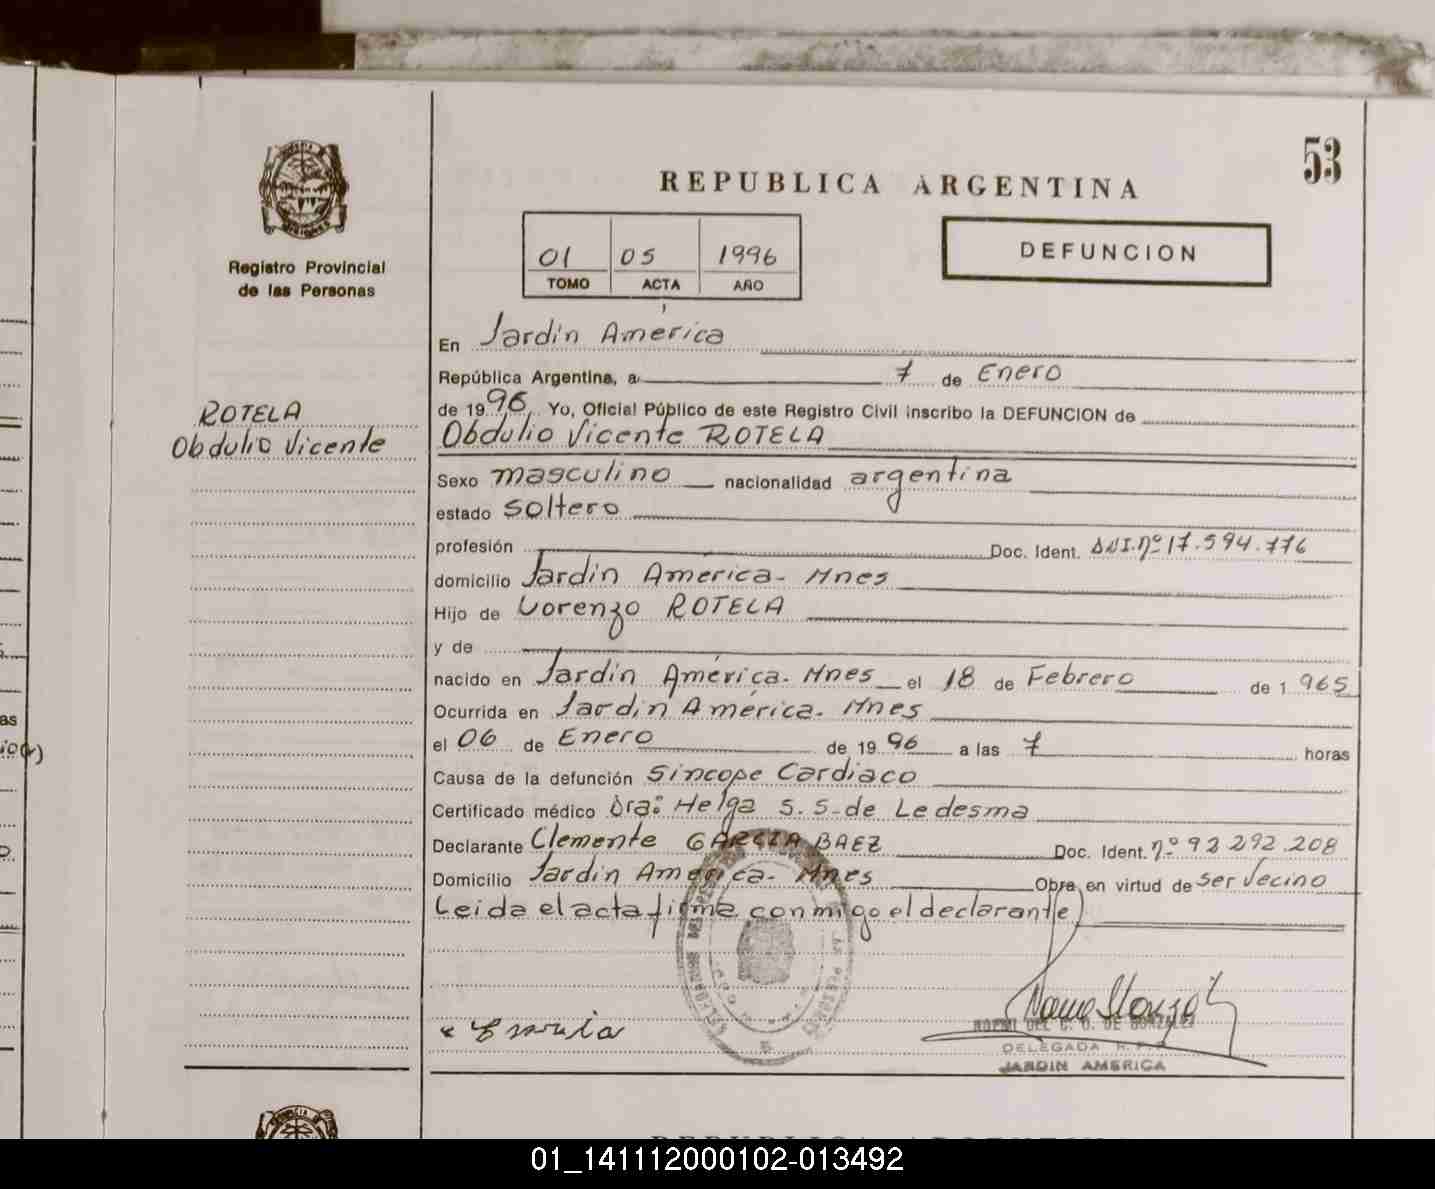 53
REPUBLICA ARGENTINA
MISIONES
Registro Provincial
de las Personas
01 05 1996
TOMO ACTA AÑO
DEFUNCION
En Jardin America
República Argentina, a 7 de Enero
de 1996 Yo, Oficial Público de este Registro Civil inscribo la DEFUNCION de
ROTELA
Obdulio Vicente
Obdulio Vicente ROTELA
Sexo masculino nacionalidad argentina
estado soltero
profesión Doc. Ident. DNI.nº 17.594.776
domicilio Jardin America- Mnes
Hijo de Lorenzo ROTELA
y de
nacido en Jardin América. Mnes el 18 de Febrero de 1965
Ocurrida en Jardin América. Mnes
el 06 de Enero de 1996 a las 7 horas
Causa de la defunción Sincope Cardiaco
Certificado médico Dra: Helga S. S. de Ledesma
Declarante Clemente GARCIA BAEZ Doc. Ident. nº 92 292.208
Domicilio Jardin América- Mnes Obra en virtud de ser Vecino
Leida el acta firma conmigo el declarante
NOEMI DEL C. O. DE GONZALEZ
DELEGADA R.P.P.
JARDIN AMERICA
REPUBLICA ARGENTINA
01_141112000102-013492